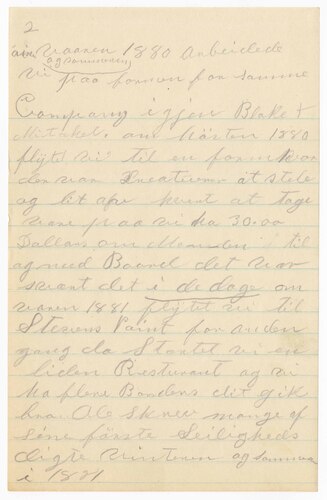 2
vaaren 1880 arbeidede
og sommeren
vi paa farmen for samme
Company igjen Blake &
Mitchel, om Hösten 1880
flytet vi til en farm hvor
den var Creaturer at stele
og let apr hvent at tage
vare paa vi ha 30.00
Dallars om Monden til
og med Board det var
svart det i de dage om
varen 1881 flytet vi til
Stevens Point for anden
gang da Startet vi en
liden Resturant og vi
ha flere Bordens dit gik
bra Ole skrev mange af
sine förste Leiligheds
digte vinteren og sommeren
i 1881